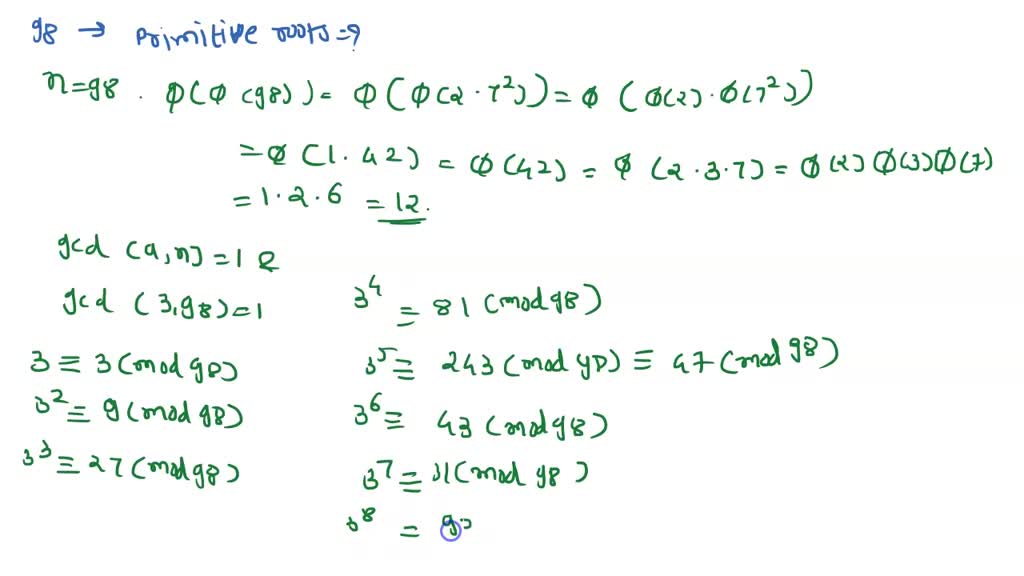 98 → primitive roots=?
n=98 . φ(φ(98)) = φ(φ(2·7²)) = φ(φ(2)·φ(7²))
= φ(1·42) = φ(42) = φ(2·3·7) = φ(2)φ(3)φ(7)
= 1·2·6 = 12.
gcd (a,n)=1 &
gcd (3,98)=1
3 ≡ 3(mod 98)
3² ≡ 9(mod 98)
3³ ≡ 27(mod 98)
3⁴ ≡ 81(mod 98)
3⁵ ≡ 243(mod 98) ≡ 47(mod 98)
3⁶ ≡ 43(mod 98)
3⁷ ≡ 31(mod 98)
3⁸ =